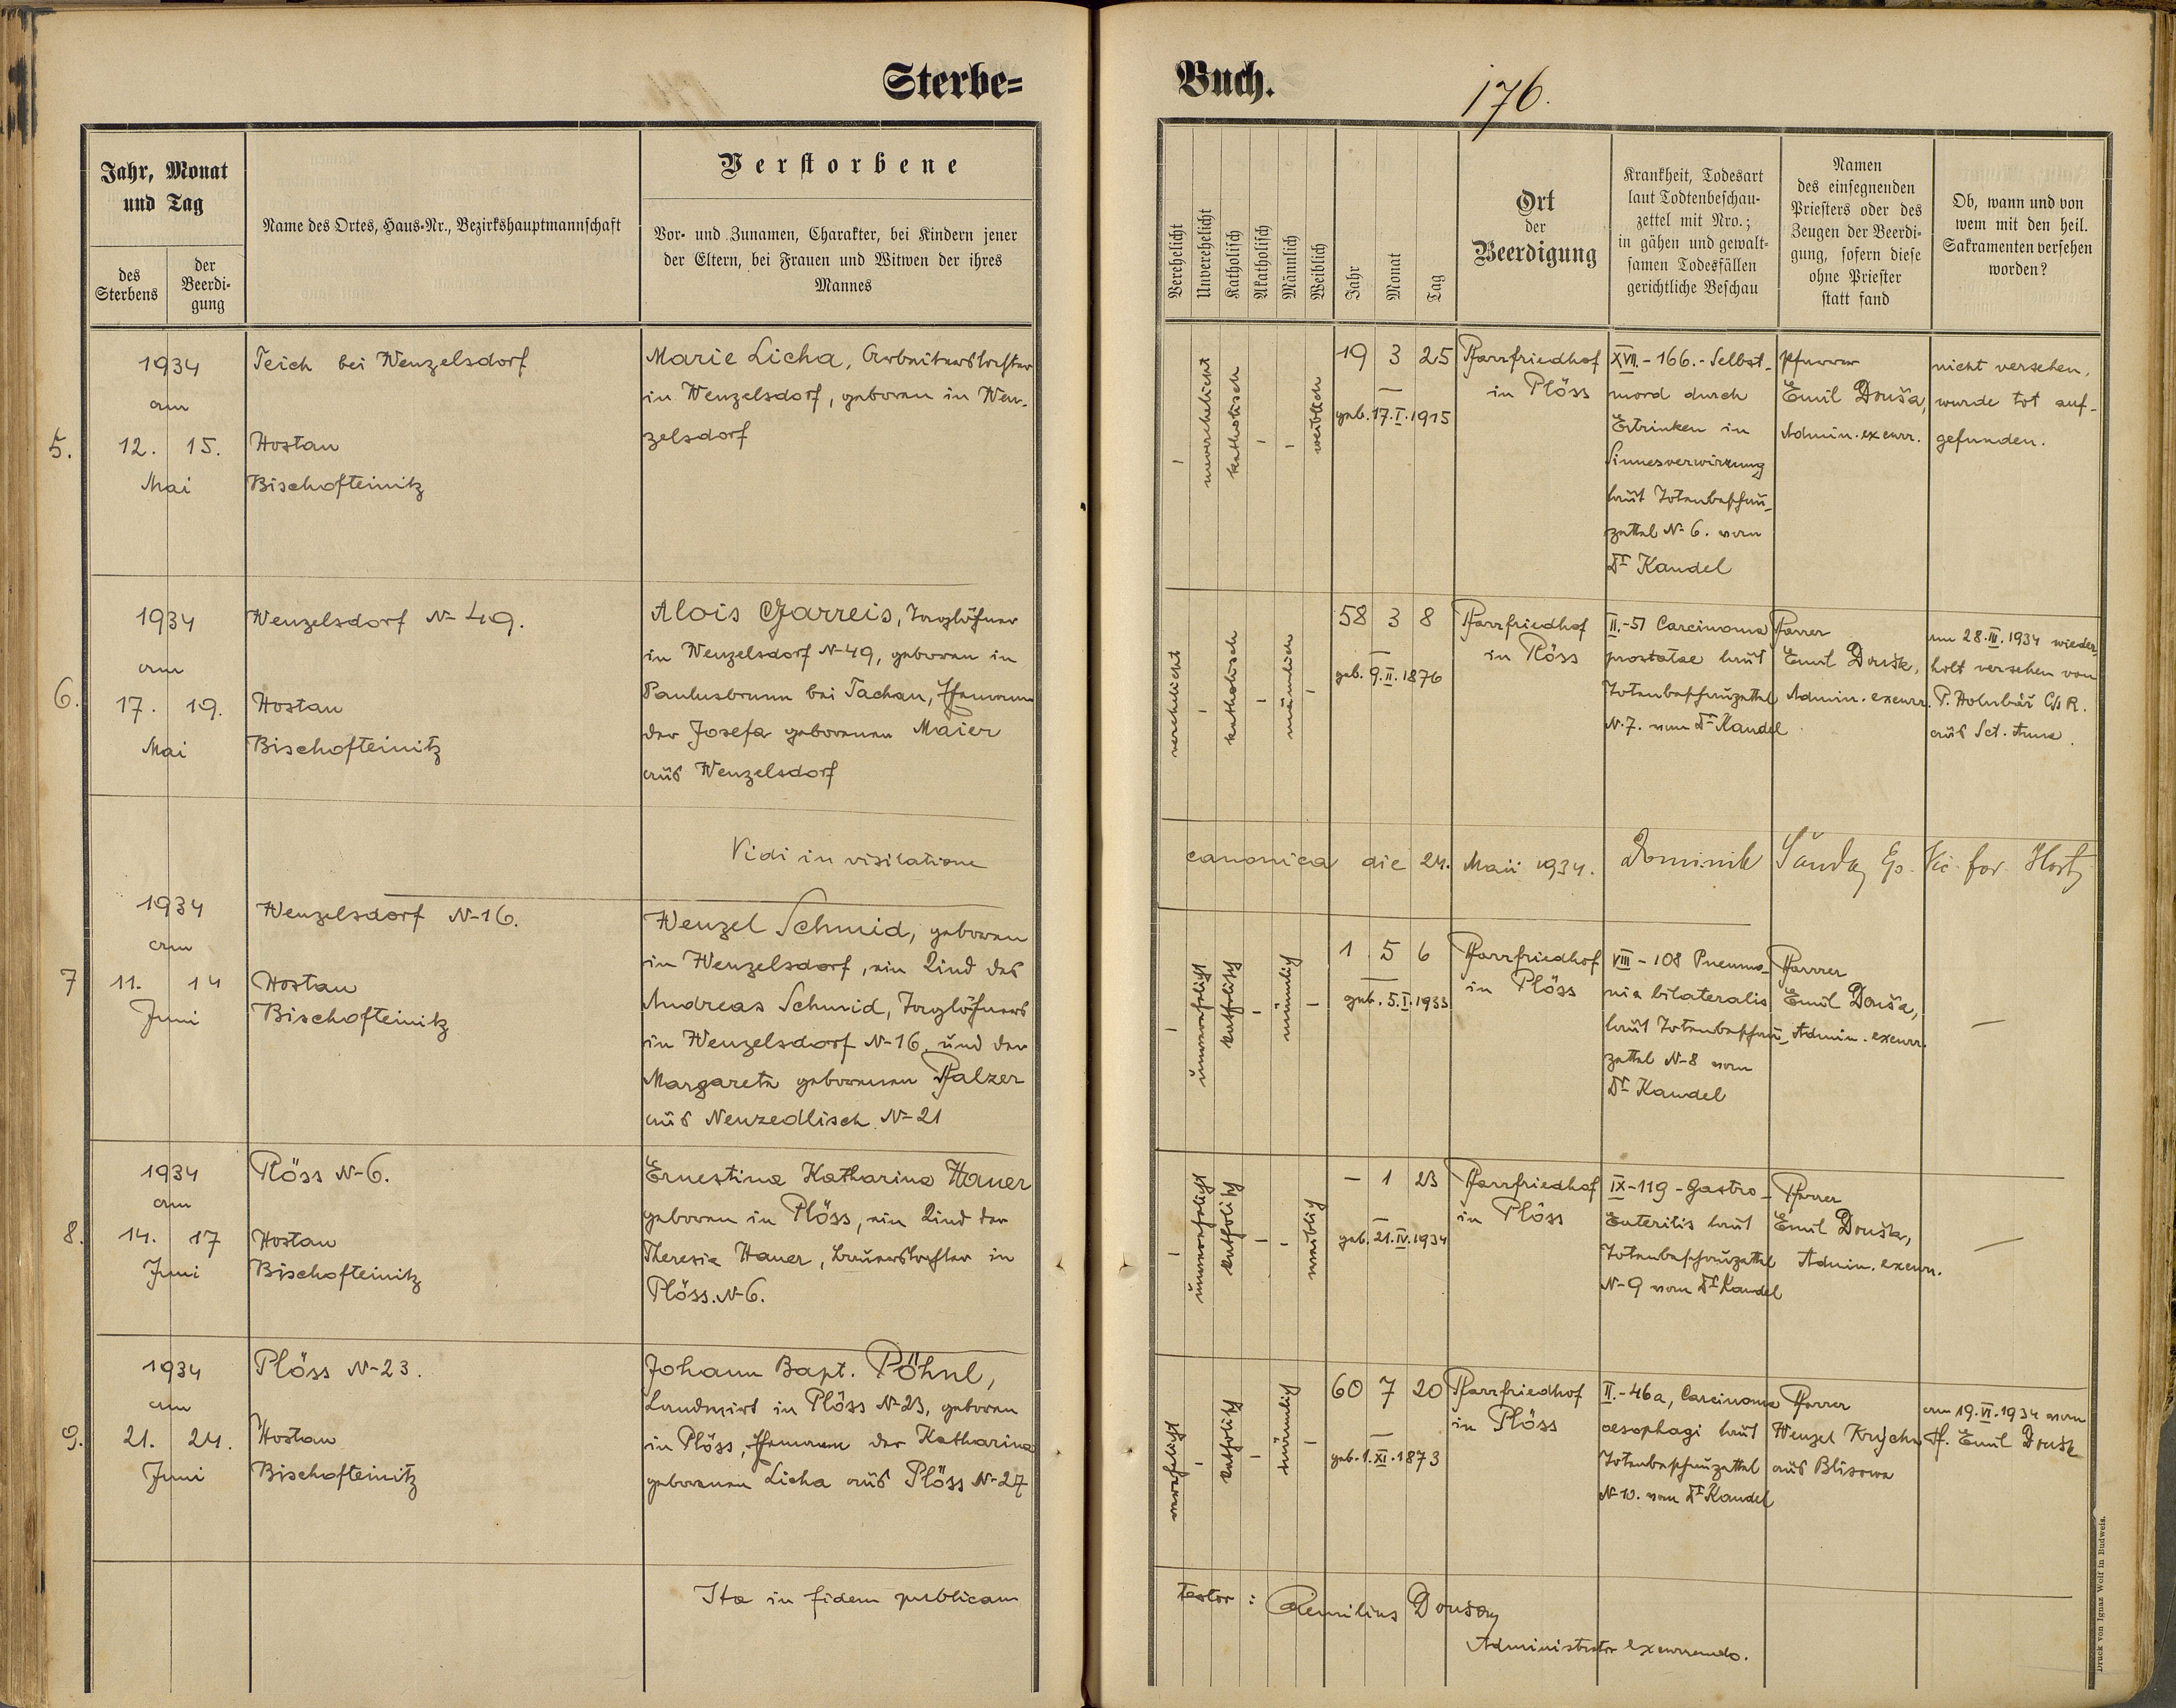 Sterbe=
Buch.
176.
Jahr, Monat
und Tag
des
Sterbens
der
Beerdi-
gung
Name des Ortes, Haus-Nr., Bezirkshauptmannschaft
Verstorbene
Vor- und Zunamen, Charakter, bei Kindern jener
der Eltern, bei Frauen und Witwen der ihres
Mannes
Verehelicht
Unverehelicht
Katholisch
Akatholisch
Männlich
Weiblich
Jahr
Monat
Tag
Ort
der
Beerdigung
Krankheit, Todesart
laut Todtenbeschau-
zettel mit Nro.;
in gähen und gewalt-
samen Todesfällen
gerichtliche Beschau
Namen
des einsegnenden
Priesters oder des
Zeugen der Beerdi-
gung, sofern diese
ohne Priester
statt fand
Ob, wann und von
wem mit den heil.
Sakramenten versehen
worden?
5.
1934
am
12. 15.
Mai
Teich bei Wenzelsdorf
Hostau
Bischofteinitz
Marie Licha, Arbeiterstochter
in Wenzelsdorf, geboren in Wen-
zelsdorf
-
unverehelicht
katholisch
-
-
weiblich
19 3 25
geb. 17. I. 1915
Pfarrfriedhof
in Plöss
XVII. - 166. - Selbst-
mord durch
Ertrinken in
Sinnesverwirrung
laut Totenbeschau-
zettel N- 6. vom
Dr Kandel
Pfarrer
Emil Douša,
Admin. excurr.
nicht versehen,
wurde tot auf-
gefunden.
6.
1934
am
17. 19.
Mai
Wenzelsdorf N- 49.
Hostau
Bischofteinitz
Alois Garreis, Taglöhner
in Wenzelsdorf N-49, geboren in
Paulusbrunn bei Tachau, Ehemann
der Josefa geborenen Maier
aus Wenzelsdorf
verehelicht
-
katholisch
-
männlich
-
58 3 8
geb. 9. II. 1876
Pfarrfriedhof
in Plöss
II. - 51 Carcinoma
prostatae laut
Totenbeschauzettel
N-7. vom Dr Kandel
Pfarrer
Emil Douša,
Admin. excurr.
am 28. III. 1934 wieder-
holt versehen von
P. Holubář
aus Sct. Anna.
Vidi in visitatione
canonica die 24. Maii 1934. Dominik Šanda, Ep. Vic. for. Host.
7
1934
am
11. 14
Juni
Wenzelsdorf N-16.
Hostau
Bischofteinitz
Wenzel Schmid, geboren
in Wenzelsdorf, ein Kind des
Andreas Schmid, Taglöhners
in Wenzelsdorf N-16. und der
Margareta geborenen Pfalzer
aus Neuzedlisch N-21
-
unverehelicht
katholisch
-
männlich
-
1 5 6
geb. 5. I. 1933
Pfarrfriedhof
in Plöss
VIII - 108 Pneumo-
nia bilateralis
laut Totenbeschau-
zettel N-8 vom
Dr Kandel
Pfarrer
Emil Douša,
Admin. excurr.
—
8.
1934
am
14. 17
Juni
Plöss N-6.
Hostau
Bischofteinitz
Ernestina Katharina Hauer
geboren in Plöss, ein Kind der
Theresia Hauer, Bauerstochter in
Plöss. N-6.
-
unverehelicht
katholisch
-
-
weiblich
- 1 23
geb. 21. IV. 1934
Pfarrfriedhof
in Plöss
IX - 119 - Gastro-
Enteritis laut
Totenbeschauzettel
N-9 vom Dr Kandel
Pfarrer
Emil Douša,
Admin. excurr.
—
9.
1934
am
21. 24.
Juni
Plöss N-23.
Hostau
Bischofteinitz
Johann Bapt. Pöhnl,
Landwirt in Plöss N-23, geboren
in Plöss, Ehemann der Katharina
geborenen Licha aus Plöss N-27
verehelicht
-
katholisch
-
männlich
-
60 7 20
geb. 1. XI. 1873
Pfarrfriedhof
in Plöss
II. - 46a, Carcinoma
oesophagi laut
Totenbeschauzettel
N-10. vom Dr Kandel
Pfarrer
Wenzel Krycha
aus Blisowa
am 19. VI. 1934 vom
Pf. Emil Douša
Ita in fidem publicam
testor: Aemilius Douša,
Administrator excurrendo.
Druck von Ignaz Wolf in Budweis.